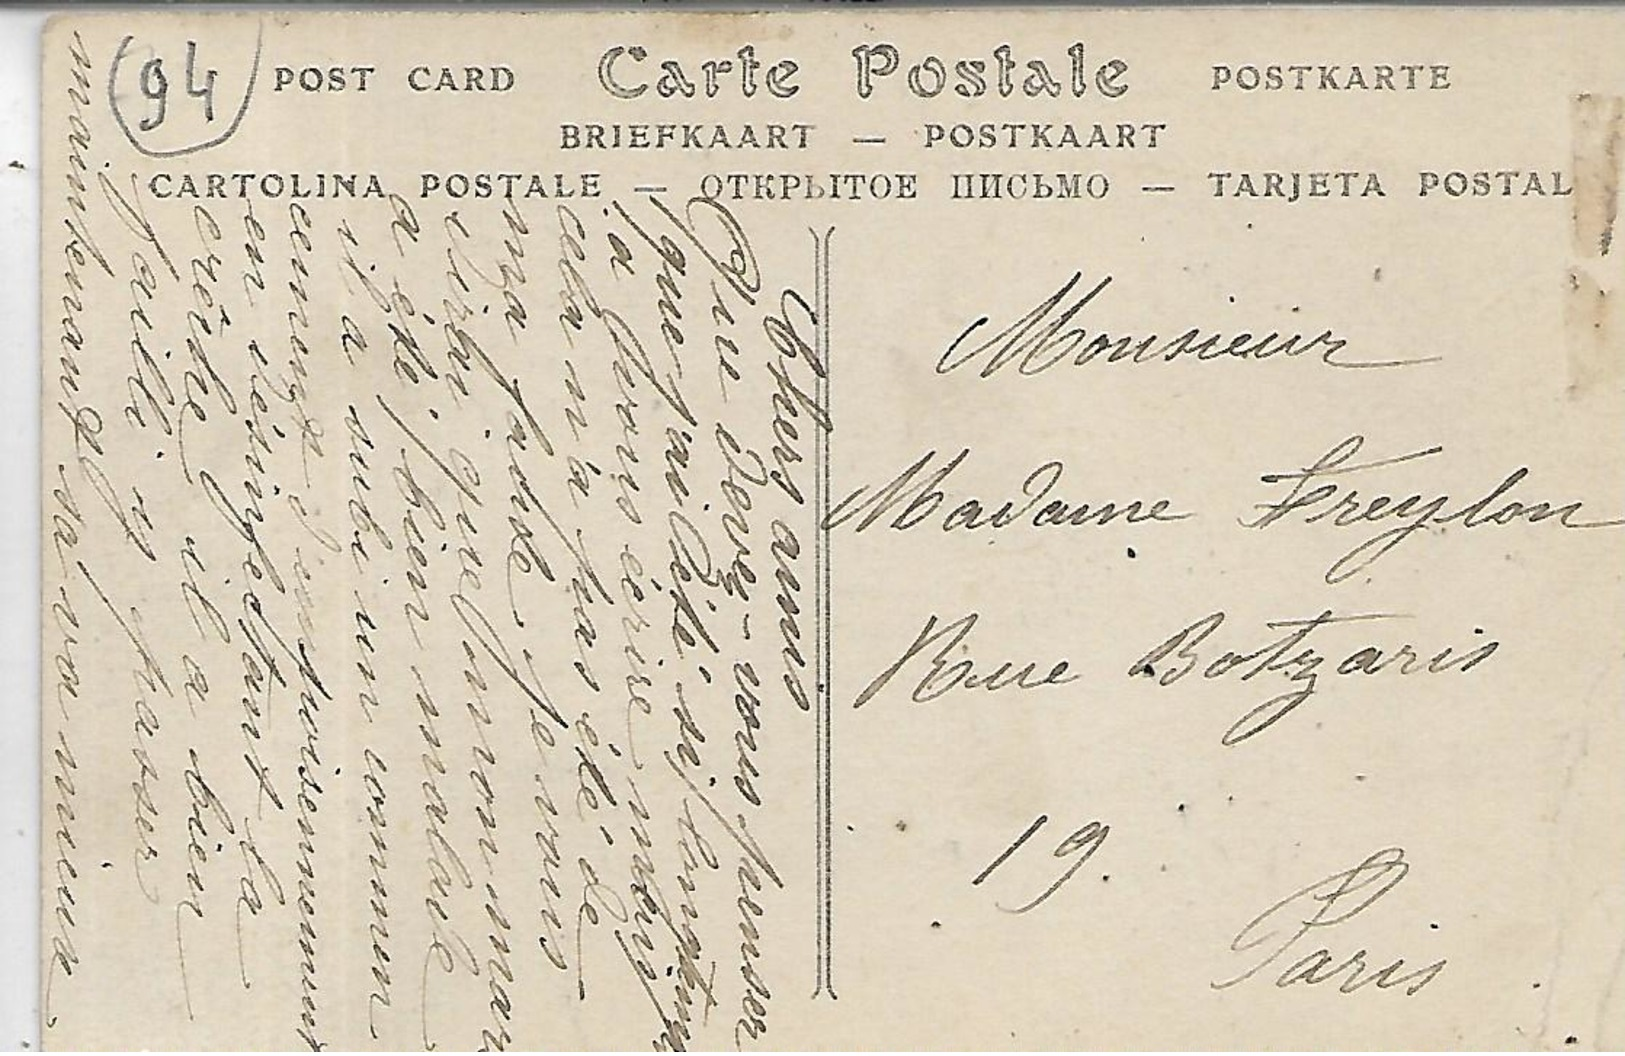 94
POST CARD Carte Postale POSTKARTE
BRIEFKAART — POSTKAART
CARTOLINA POSTALE — ОТКРЫТОЕ ПИСЬМО — TARJETA POSTAL
Chers amis
Que devez-vous penser
que j'ai été si longtemps
à vous écrire mais
cela n'a pas été de
ma faute. je vous
dirai que mon mari
a été bien malade
il a subi un commen
cement d'empoisennement
en désinfectant la
crête il a bien
failli y passer
maintenant sa va mieux.
Monsieur
Madame Freylon
Rue Botzaris
19.
Paris